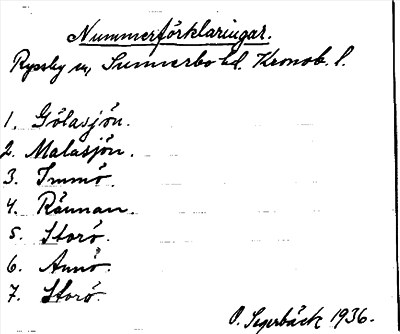 Nummerförklaringar.
Ryssby sn, Sunnerbo hd. Kronob. l.
1. Gölasjön.
2. Malasjön.
3. Immö.
4. Rännan.
5. Storö.
6. Annö.
7. Storö.
O. Segerbäck 1936.